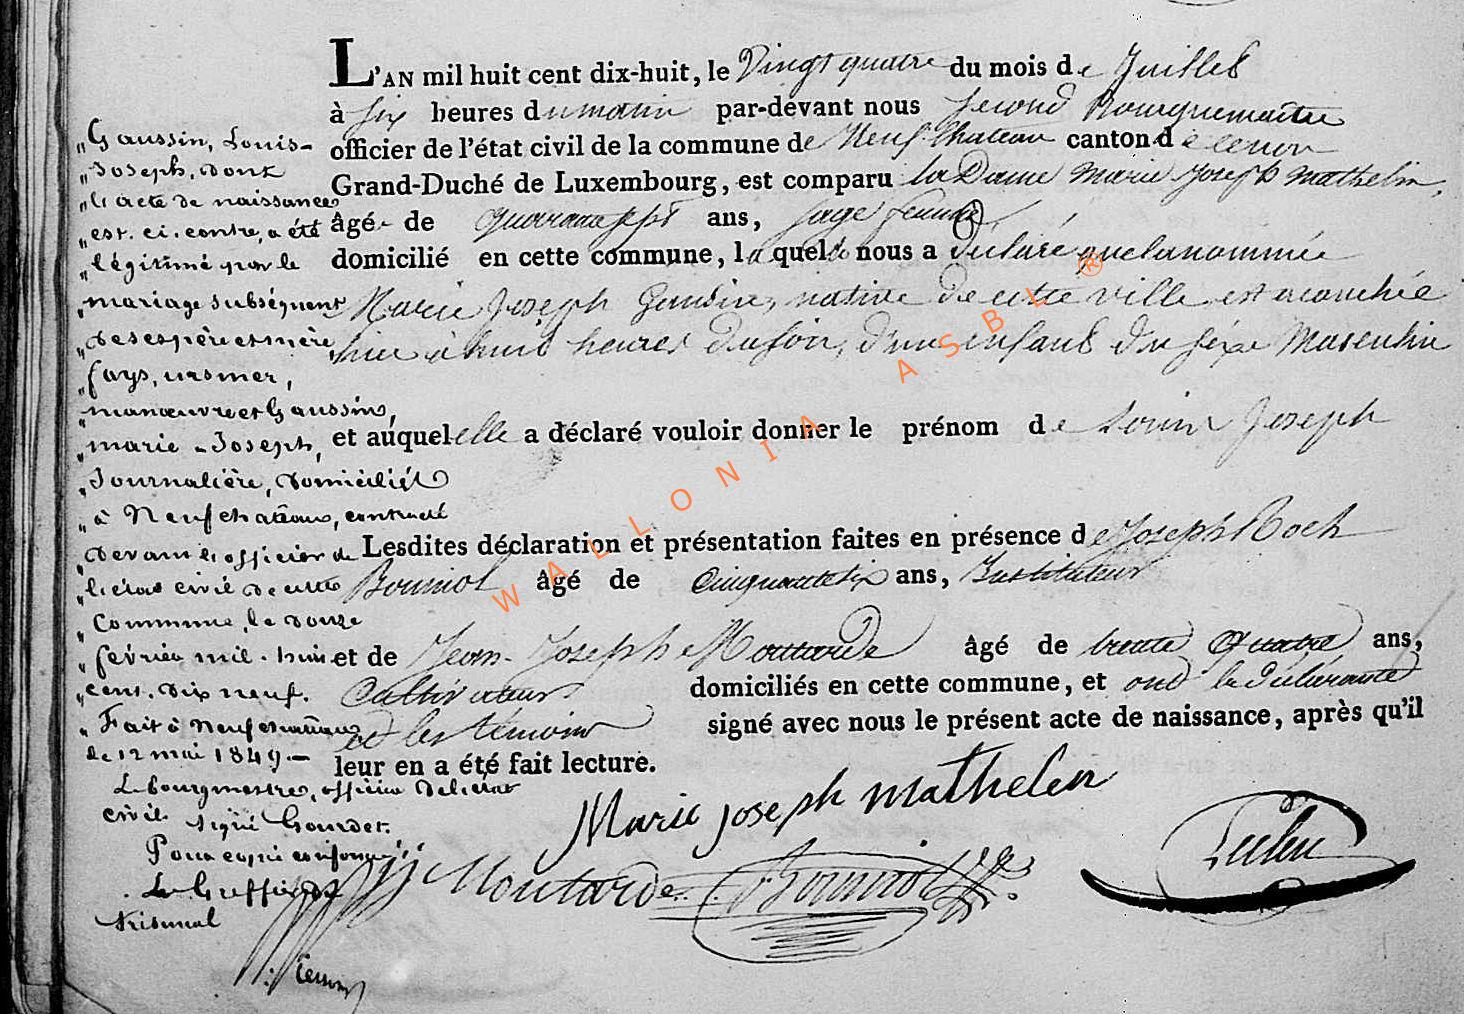 L'AN mil huit cent dix-huit, le Vingt quatre du mois de Juillet
à six heures du matin par-devant nous second Bourguemaître
officier de l'état civil de la commune de Neufchateau canton de
Grand-Duché de Luxembourg, est comparu la Dame Marie Joseph Mathelin,
âgé de quarante sept ans, sage femme
domicilié en cette commune, la quelle nous a déclaré que la nommée
Marie Joseph Gaussin, native de cette ville est acouchée
hier à huit heures du soir, d'un enfant du séxe Masculin
et auquel elle a déclaré vouloir donner le prénom de Louis Joseph
Lesdites déclaration et présentation faites en présence de Joseph Roch
Bouniol âgé de cinquante six ans, Instituteur
et de Jean-Joseph Moutarde âgé de trente quatre ans,
cultivateur domiciliés en cette commune, et ont la déclarante
et les témoins signé avec nous le présent acte de naissance, après qu'il
leur en a été fait lecture.
Marie joseph mathelin
JJ Moutarde Bouniol
„Gaussin, Louis-
„Joseph, dont
„l'acte de naissance
„est ci-contre, a été
„légitimé par le
„mariage subséquent
„de ses père et mère,
„fays, ursmer,
„manœuvre et Gaussin,
„marie-Joseph,
„Journalière, domiciliés
„à Neufchateau, contracté
„devant l'officier de
„l'état civil de cette
„Commune, le douze
„février mil-huit-
„cent-dix neuf.
„Fait à Neufchateau
le 12 mai 1849.—
Le bourgmestre, officier de l'état
civil signé Gourdet.
Pour copie conforme:
Le Greffier du
tribunal
WALLONIA ASBL ®